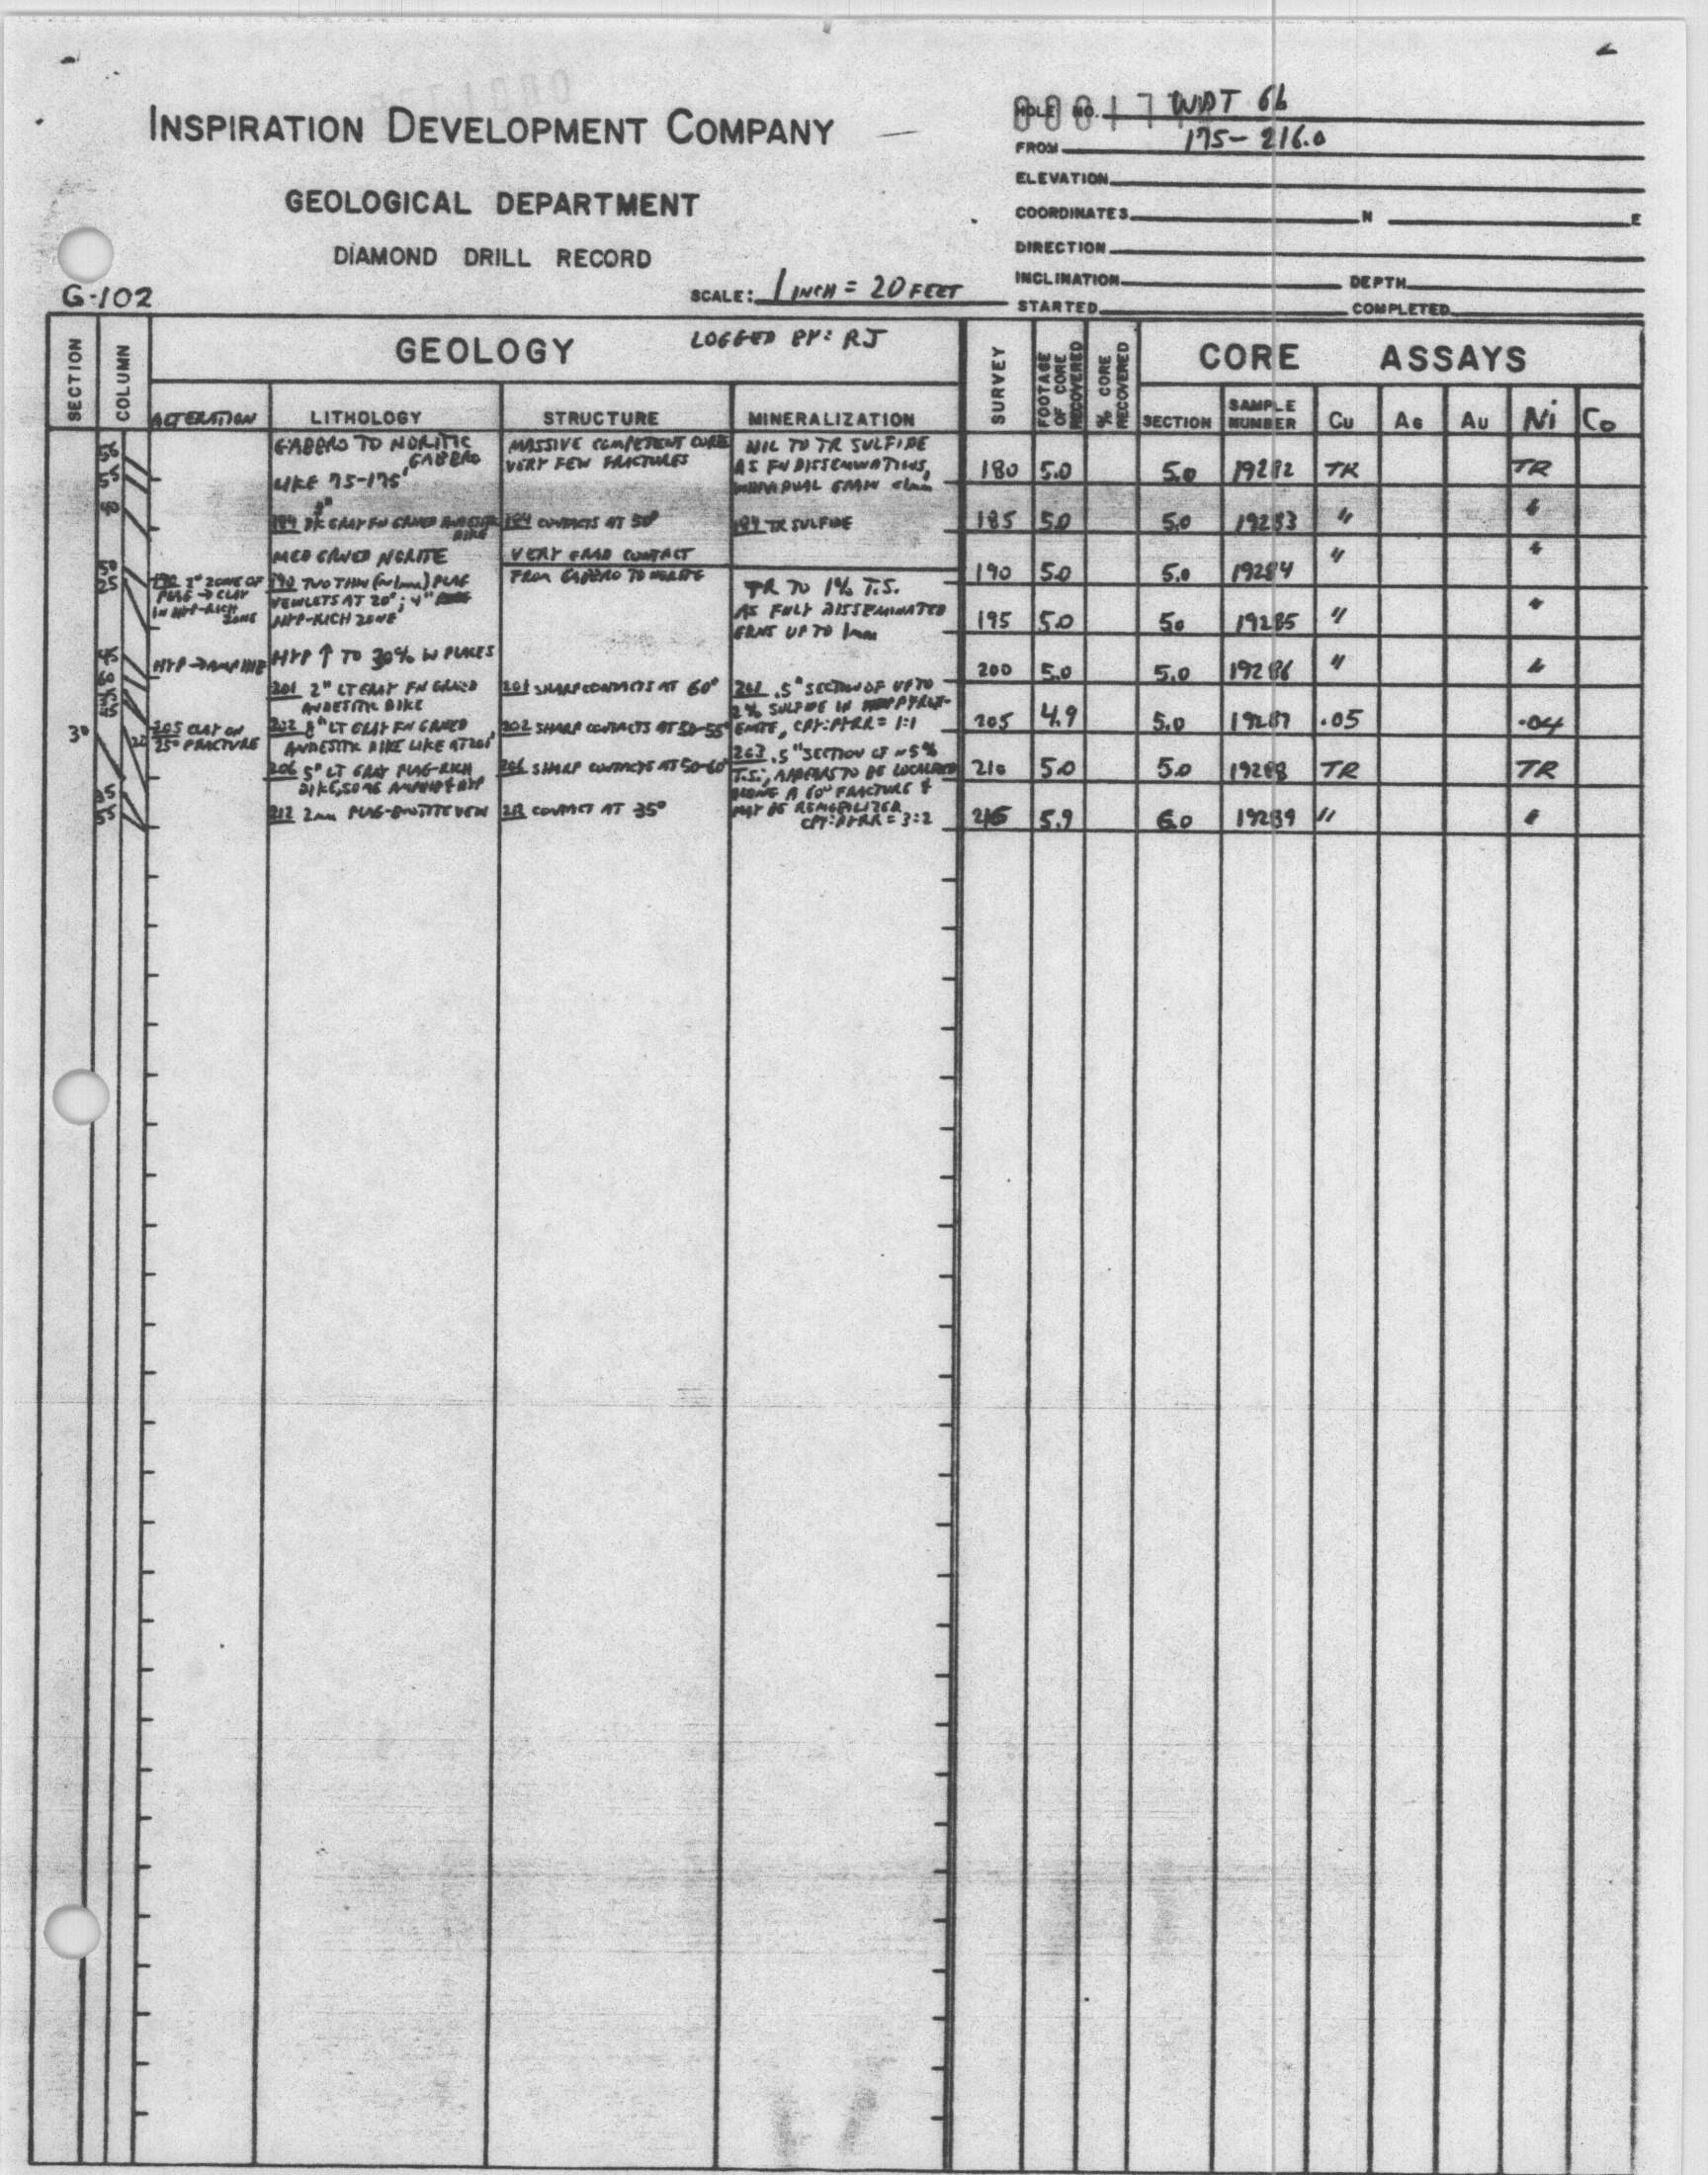 INSPIRATION DEVELOPMENT COMPANY
GEOLOGICAL DEPARTMENT
DIAMOND DRILL RECORD
G-102
SCALE: 1 INCH = 20 FEET
HOLE NO. WDT 66
FROM 175-216.0
ELEVATION
COORDINATES N E
DIRECTION
INCLINATION DEPTH
STARTED COMPLETED
SECTION
COLUMN
GEOLOGY
LOGGED BY: RJ
SURVEY
FOOTAGE OF CORE RECOVERED
% CORE RECOVERED
CORE ASSAYS
ALTERATION LITHOLOGY STRUCTURE MINERALIZATION
SECTION SAMPLE NUMBER Cu AG AU Ni Co
GABBRO TO NORITIC
GABBRO
LIKE 75-175'
MASSIVE COMPETENT CORE
VERY FEW FRACTURES
NIL TO TR SULFIDE
AS FN DISSEMINATIONS,
INDIVIDUAL GRAIN <1mm
180 5.0 5.0 19282 TR TR
184 DK GRAY FN GRNED ANDESITIC
DIKE
184 CONTACTS AT 50°
184 TR SULFIDE
185 5.0 5.0 19283 " "
MED GRNED NORITE
VERY GRAD CONTACT
FROM GABBRO TO NORITE
190 5.0 5.0 19284 " "
190 2" ZONE OF
PLAG → CLAY
IN HYP-RICH
ZONE
190 TWO THIN (~1mm) PLAG
VEINLETS AT 20°; 4"
HYP-RICH ZONE
TR TO 1% T.S.
AS FNLY DISSEMINATED
GRNS UP TO 1mm
195 5.0 5.0 19285 " "
HYP → AMPHIB
HYP ↑ TO 30% IN PLACES
200 5.0 5.0 19286 " "
201 2" LT GRAY FN GRNED
ANDESITIC DIKE
201 SHARP CONTACTS AT 60°
201 .5" SECTION OF UP TO
2% SULFIDE IN
CPY:PYRR = 1:1
205 CLAY ON
25° FRACTURE
202 8" LT GRAY FN GRNED
ANDESITIC DIKE LIKE AT 201'
202 SHARP CONTACTS AT 50-55°
205 4.9 5.0 19287 .05 .04
203 .5" SECTION OF ~5%
T.S., APPEARS TO BE LOCALIZED
ALONG A 60° FRACTURE &
MAY BE REMOBILIZED
CPY:PYRR = 3:2
206 5" LT GRAY PLAG-RICH
DIKE, SOME AMPHIB & HYP
206 SHARP CONTACTS AT 50-60°
210 5.0 5.0 19288 TR TR
212 2mm PLAG-BIOTITE VEIN
212 CONTACT AT 35°
216 5.9 6.0 19289 " "